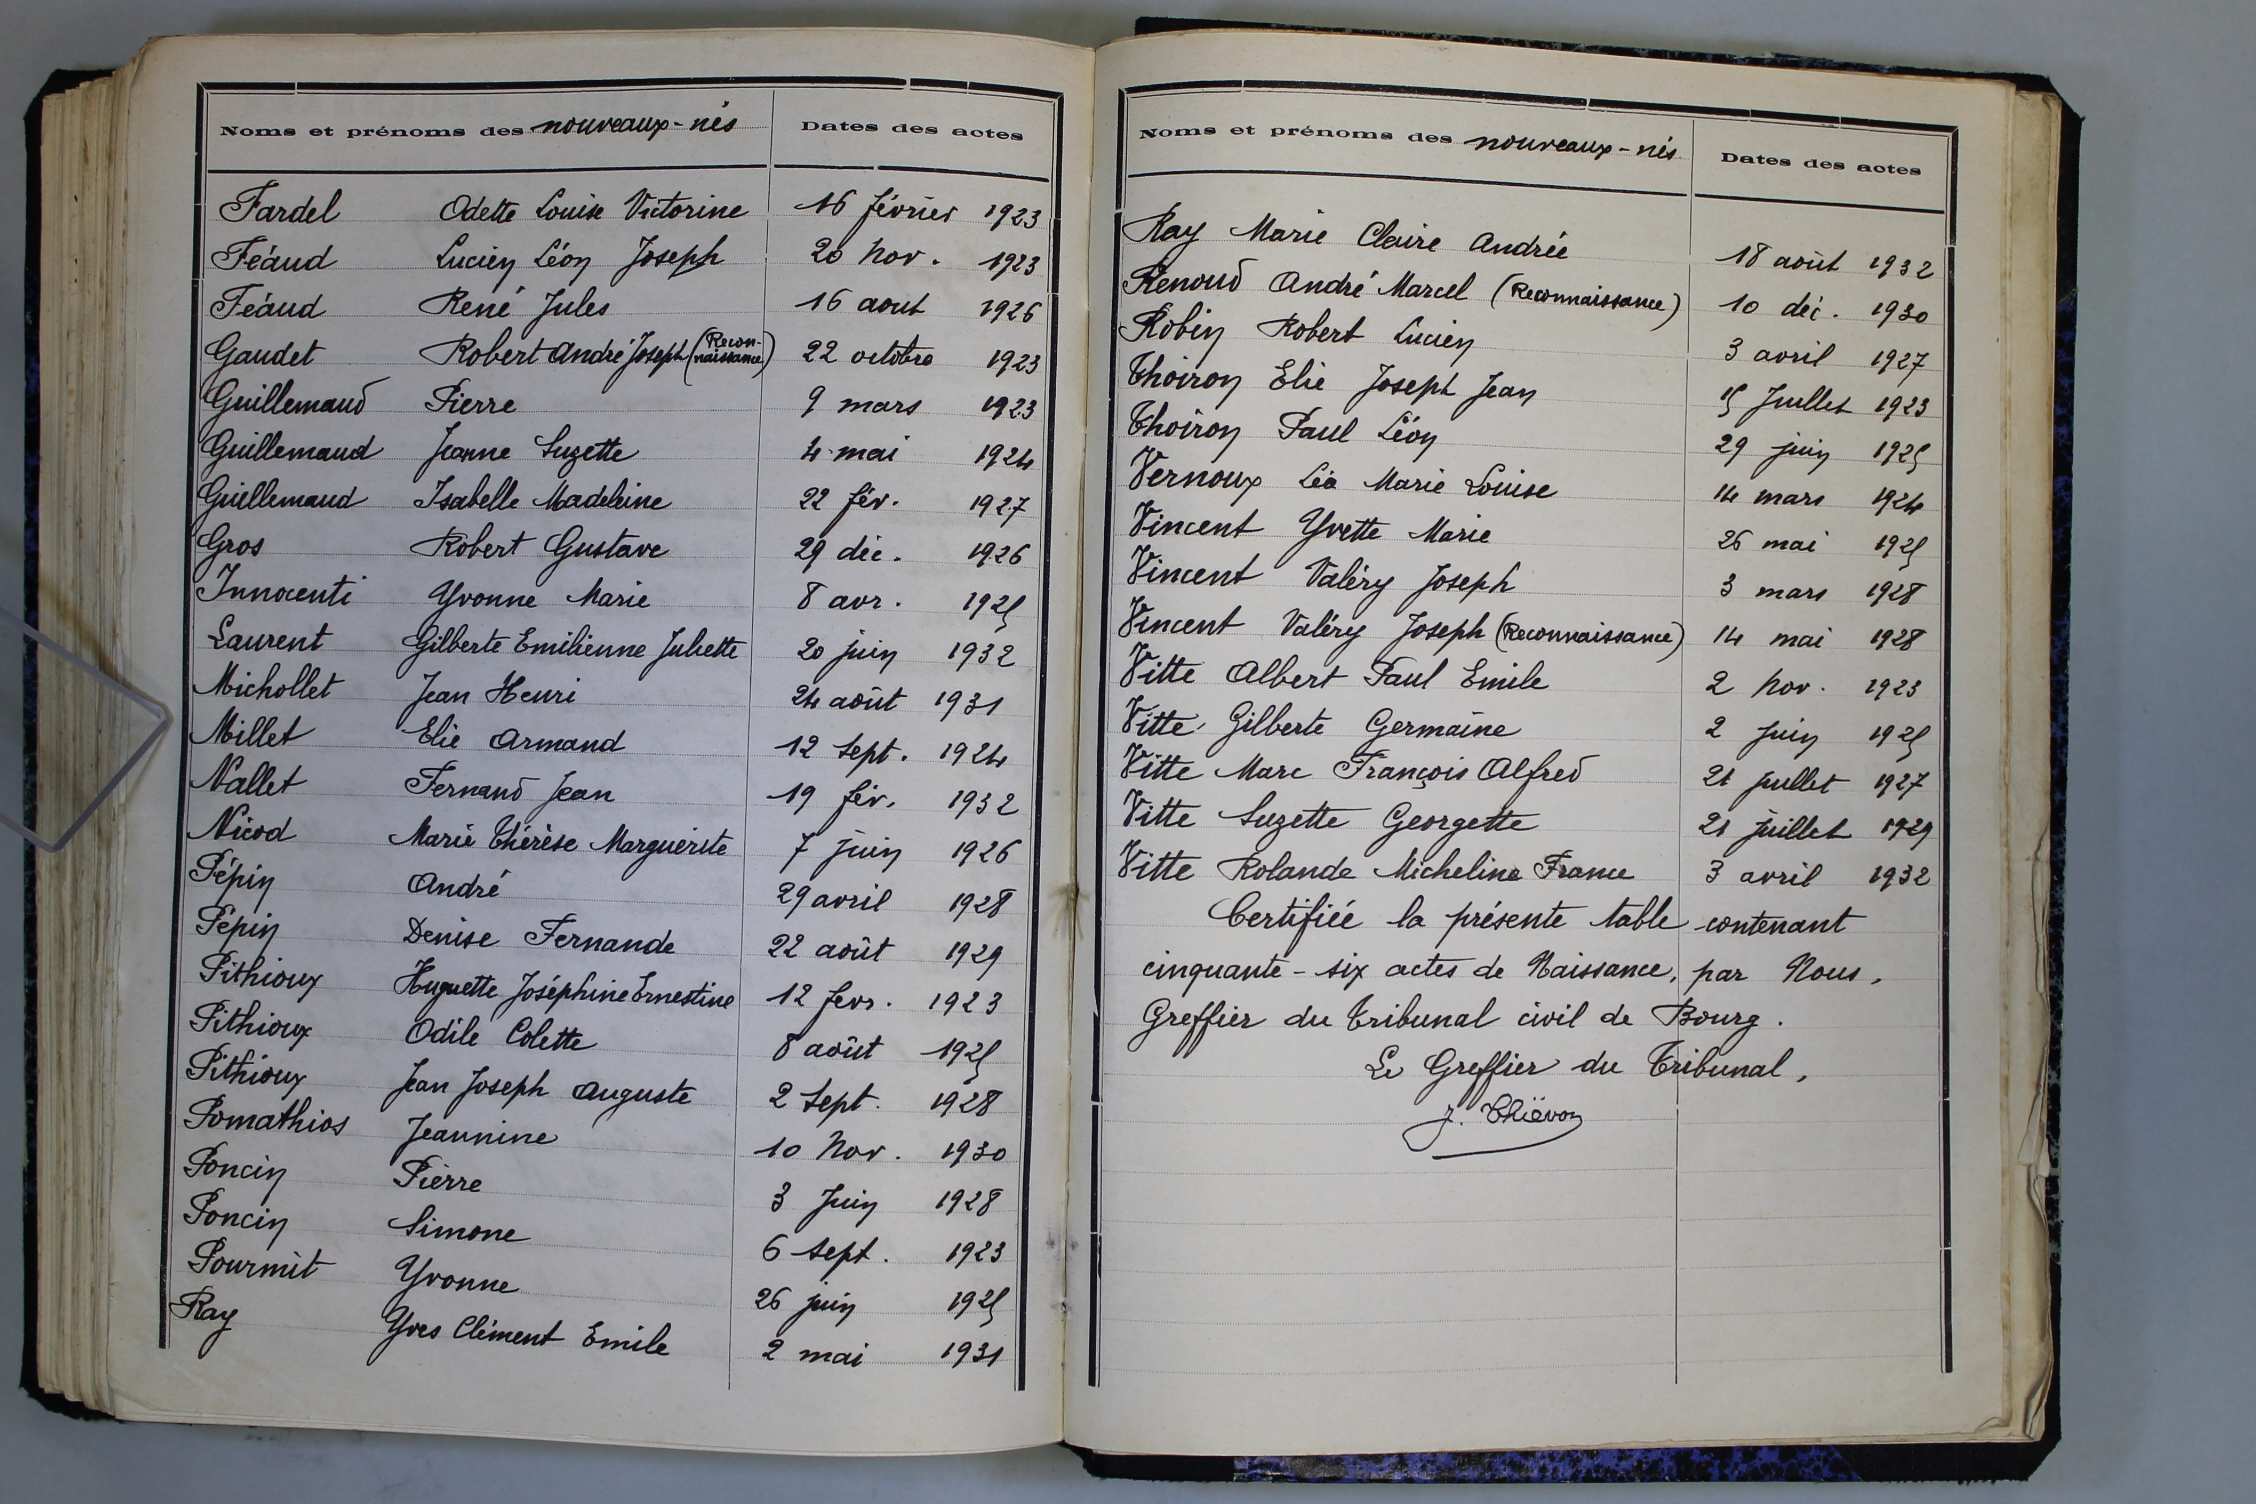 Noms et prénoms des nouveaux-nés Dates des actes
Fardel Odette Louise Victorine 16 février 1923
Féaud Lucien Léon Joseph 20 Nov. 1923
Féaud René Jules 16 aout 1926
Gaudet Robert André Joseph (Recon-naissance) 22 octobre 1923
Guillemaud Pierre 9 mars 1923
Guillemaud Jeanne Suzette 4 mai 1924
Guillemaud Isabelle Madeleine 22 fév. 1927
Gros Robert Gustave 29 déc. 1926
Innocenti Yvonne Marie 8 avr. 1925
Laurent Gilberte Emilienne Juliette 20 juin 1932
Michollet Jean Henri 24 août 1931
Millet Elie Armand 12 Sept. 1924
Nallet Fernand Jean 19 fév. 1932
Nicod Marie Thérèse Marguerite 7 juin 1926
Pépin André 29 avril 1928
Pépin Denise Fernande 22 août 1929
Pithioux Huguette Joséphine Ernestine 12 fevr. 1923
Pithioux Odile Colette 8 août 1925
Pithioux Jean Joseph Auguste 2 Sept. 1928
Pomathios Jeannine 10 Nov. 1930
Poncin Pierre 3 Juin 1928
Poncin Simone 6 Sept. 1923
Pourmit Yvonne 26 juin 1925
Ray Yves Clément Emile 2 mai 1931
Noms et prénoms des nouveaux-nés Dates des actes
Ray Marie Claire Andrée 18 août 1932
Renoud André Marcel (Reconnaissance) 10 déc. 1930
Robin Robert Lucien 3 avril 1927
Thoiron Elie Joseph Jean 15 Juillet 1923
Thoiron Paul Léon 29 juin 1925
Vernoux Léa Marie Louise 14 mars 1924
Vincent Yvette Marie 26 mai 1925
Vincent Valéry Joseph 3 mars 1928
Vincent Valéry Joseph (Reconnaissance) 14 mai 1928
Vitte Albert Paul Emile 2 Nov. 1923
Vitte Gilberte Germaine 2 Juin 1925
Vitte Marc François Alfred 21 juillet 1927
Vitte Suzette Georgette 21 juillet 1929
Vitte Rolande Micheline France 3 avril 1932
Certifiée la présente table contenant
cinquante-six actes de Naissance, par Nous,
Greffier du Tribunal civil de Bourg.
Le Greffier du Tribunal,
J. Thiévon